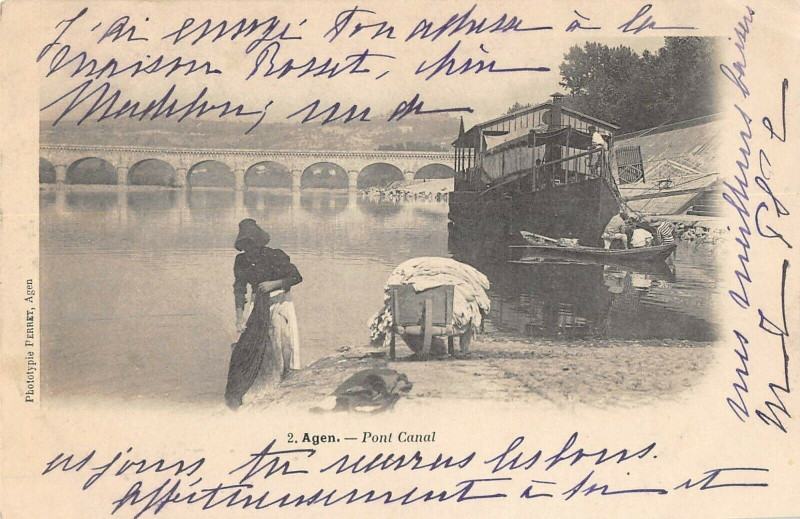 J'ai envoyé Ton adresse à la
Maison Rosset, chin
Madelon; un de
ces jours, tu recevras les bons.
Affectueusement à toi et
nos meilleurs baisers
2. Agen. — Pont Canal
Phototypie PERRET, Agen